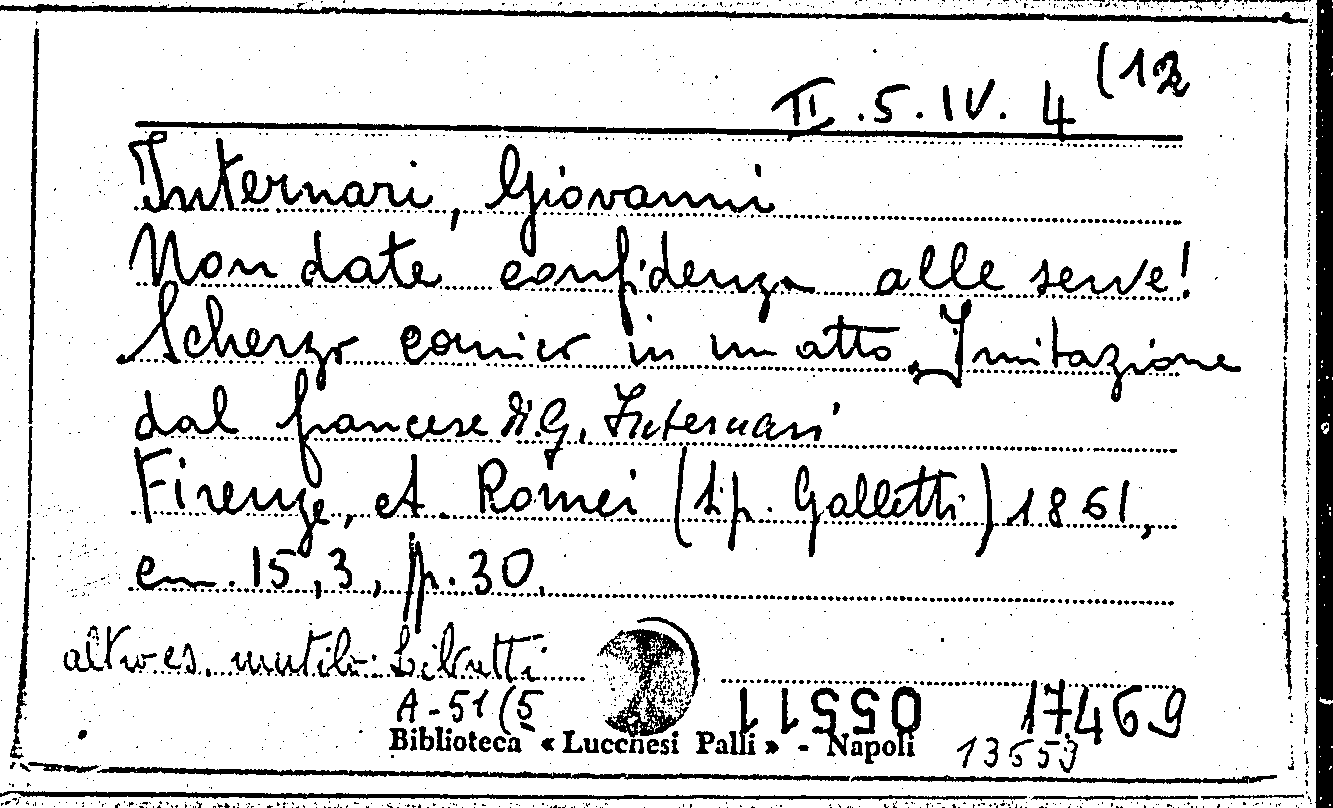 II.5.IV.4 (12
Internari, Giovanni
Non date confidenza alle serve!
Scherzo comico in un atto. Imitazione
dal francese di G. Internari
Firenze, A. Romei (tip. Galletti) 1861,
cm. 15,3, p. 30.
altro es. mutilo: Libretti
A-51(5
05511
17469
Biblioteca « Lucchesi Palli » - Napoli
13659